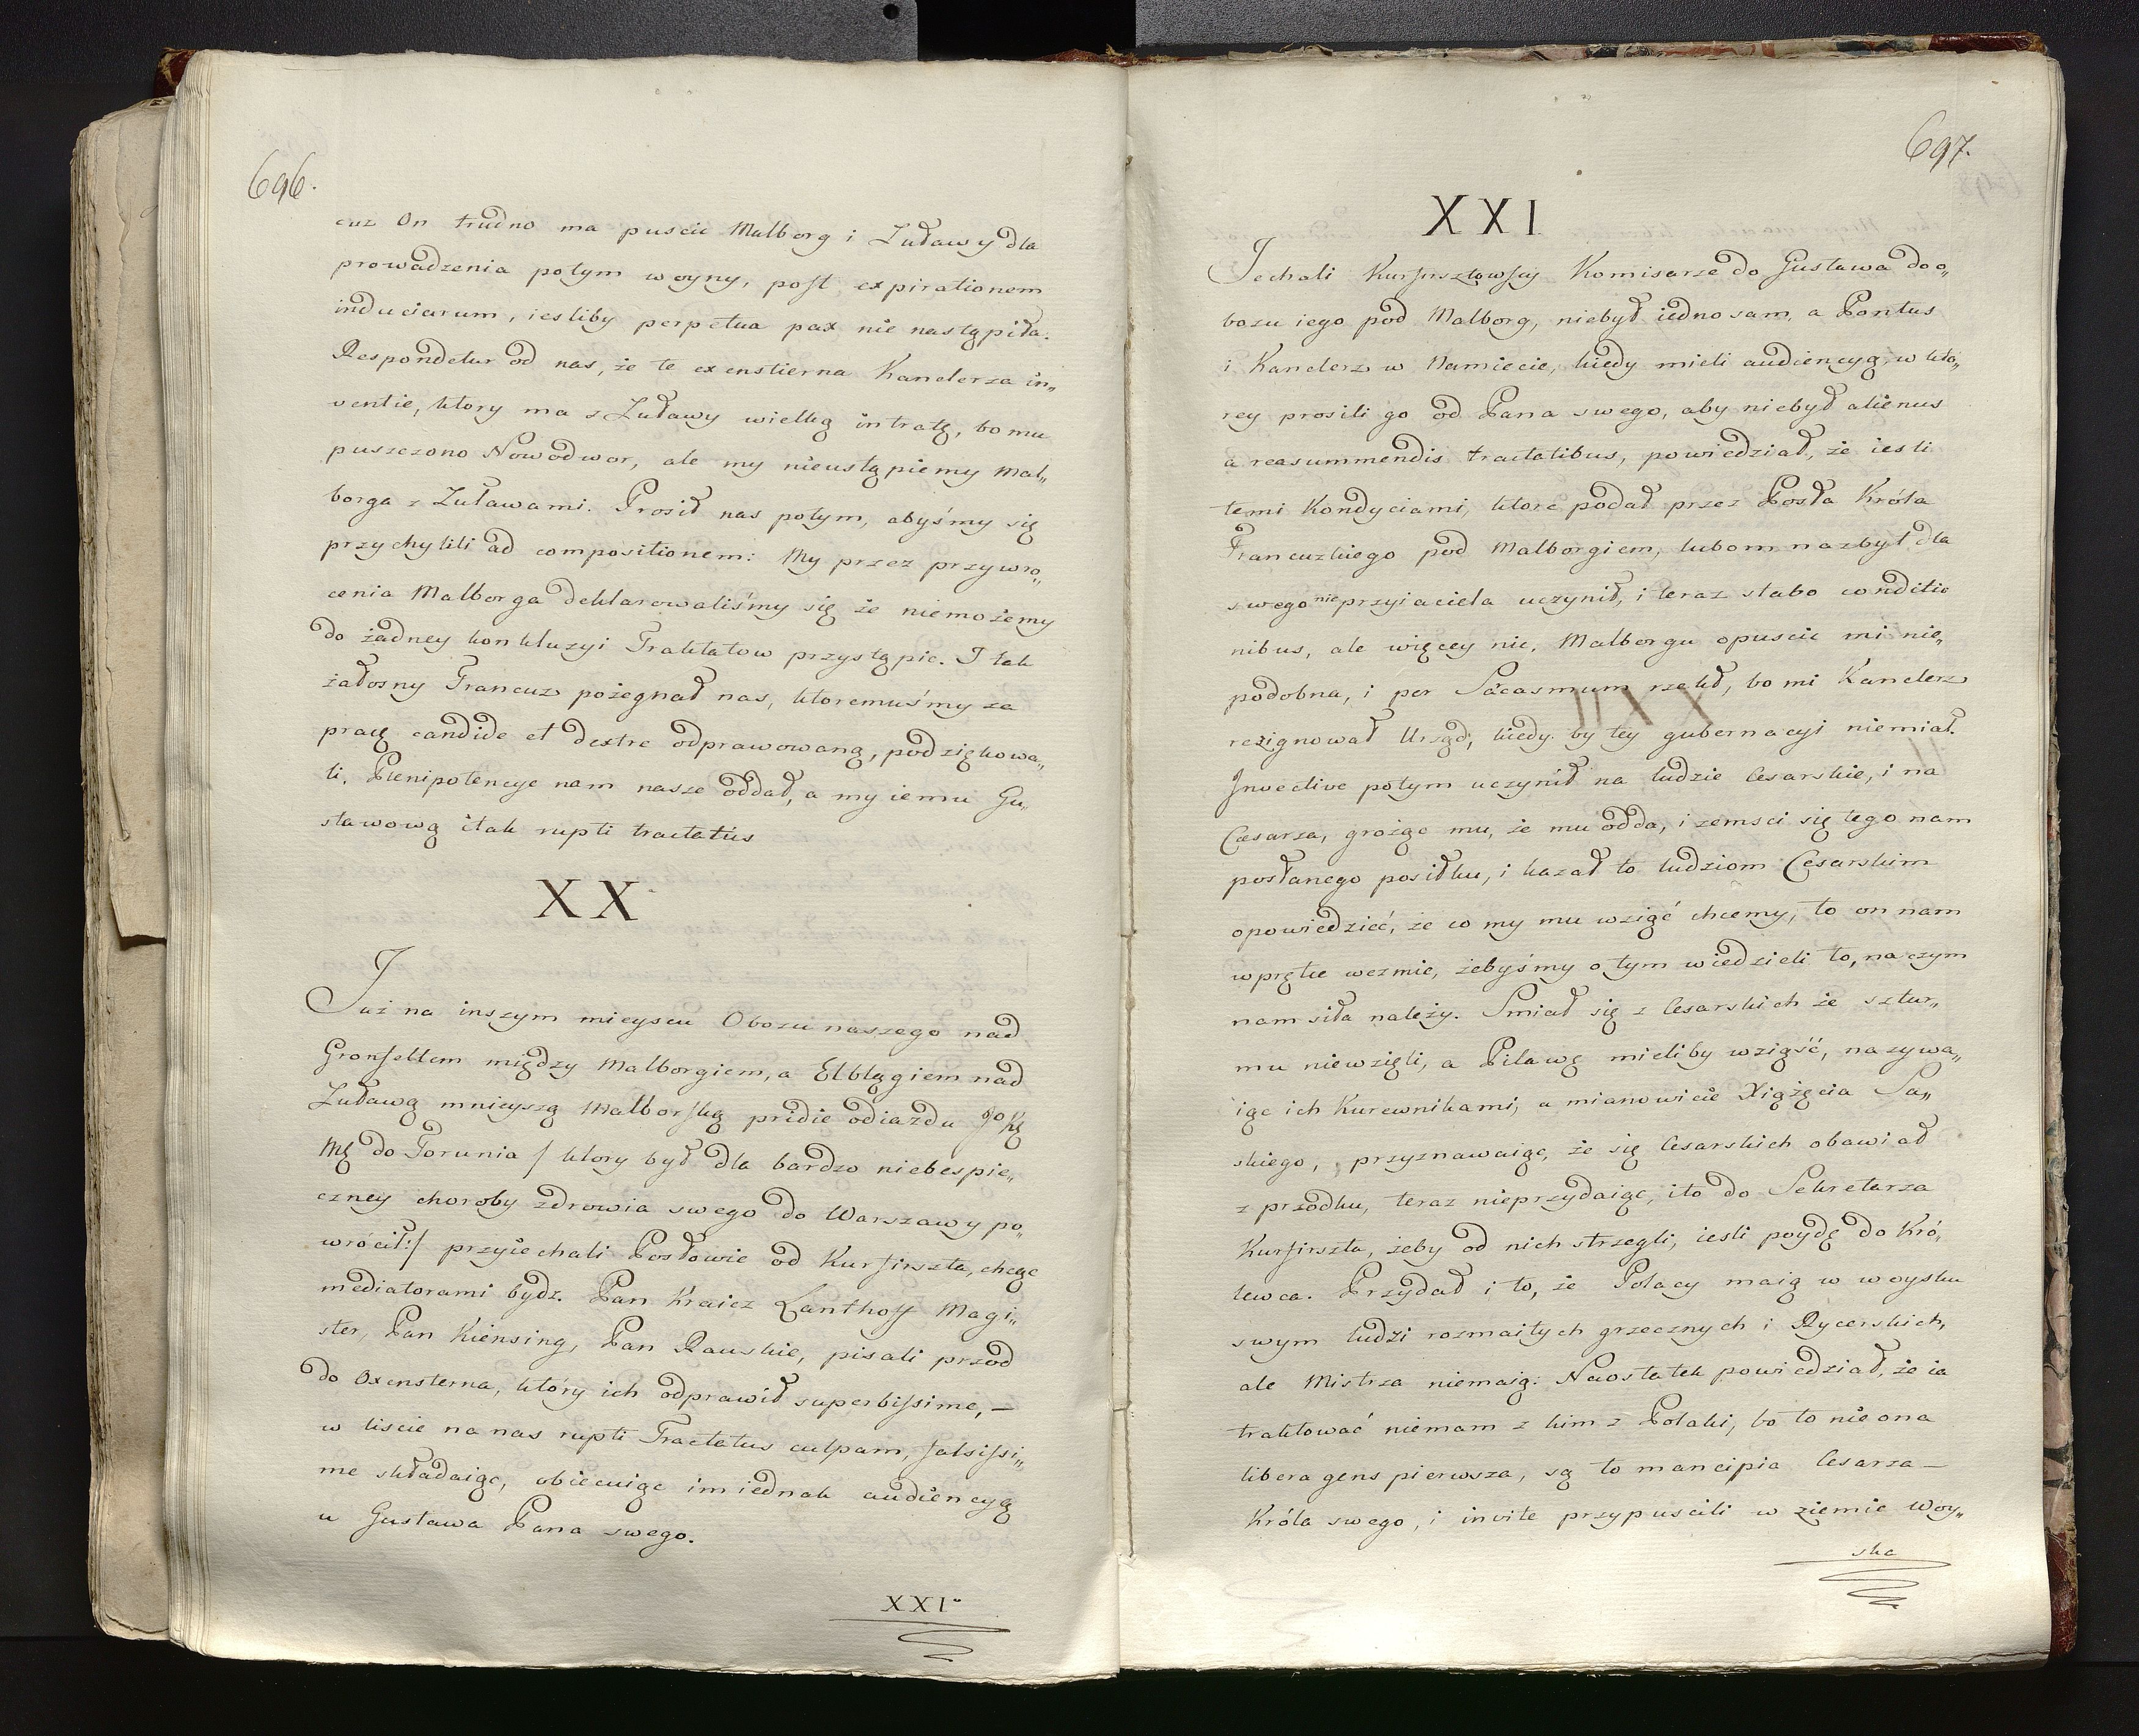 696.
cuz On trudno ma puscic Malborg i Zuławy dla
prowadzenia potym woyny, post expirationem
induciarum, iesliby perpetua pax nie nastąpiła.
Respondetur od nas, że te exenstierna Kanclerza in„
ventie, ktory ma z Zuławy wielką intratę, bo mu
puszczono Nowodwor, ale my nieustąpiemy Mal„
borga z Zuławami. Prosił nas potym, abyśmy się
przychylili ad compositionem: My przez przywro„
cenia Malborga deklarowaliśmy się że niemożemy
do żadney konkluzyi Traktatow przystąpic. I tak
żałosny Francuz pożegnał nas, ktoremuśmy za
pracę candide et dextre odprawowaną, podziękowa„
li. Plenipotencye nam nasze oddał, a my iemu Gu„
stawową itak rupti tractatus
XX
Już na inszym mieyscu Obozu naszego nad
Gronfeltem między Malborgiem, a Elblągiem nad
Zuławą mnieyszą Malborską pridie odiazdu Jo Kę
Mę do Torunia / ktory był dla bardzo niebespie„
czney choroby zdrowia swego do Warszawy po„
wrócił:/ przyiechali Posłowie od Kurfirszta, chcąc
mediatorami bydz. Pan Kraicz Lanthoff Magi„
ster, Pan Kiensing, Pan Rauskie, pisali przod
do Oxensterna, który ich odprawił superbissime, –
w liscie na nas rupti Tractatus culpam, falsissi„
me składaiąc, obiecuiąc im iednak audiencyą
u Gustawa Pana swego.
XXI
697.
XXI
Jechali Kurfirsztowscy Komisarze do Gustawa do o„
bozu iego pod Malborg, niebył iedno sam, a Pontus
i Kanclerz w Namiecie, kiedy mieli audiencyą, w któ„
rey prosili go od Pana swego, aby niebył alienus
a reasummendis tractatibus, powiedział, że iesli
temi Kondyciami, ktore podał przez Posła Króla
Francuzkiego pod Malborgiem, lubom nazbyt dla
swego nieprzyiaciela uczynił, i teraz stabo conditio
nibus, ale więcey nic, Malborgu opuscic mi nie„
podobna, i per Sacasmum rzekł, bo mi Kanclerz
rezignował Urząd, kiedy by tey gubernacyi niemiał.
Invective potym uczynił na ludzie Cesarskie, i na
Cæsarza, grożąc mu, że mu odda, i zemsci się tego nam
posłanego posiłku, i kazał to ludziom Cęsarskim
opowiedzieć, że co my mu wziąć chcemy, to on nam
wprętce wezmie, żebyśmy o tym wiedzieli to, na czym
nam siła należy. Smiał się z Cesarskich że sztur„
mu niewzięli, a Piławę mieliby wziąść, nazywa„
iąc ich Kurewnikami, a mianowicie Xiążęcia Sa„
skiego, przyznawaiąc, że się Cesarskich obawiał
z przodku, teraz nieprzydaiąc, i to do Sekretarza
Kurfirszta, żeby od nich strzegli, iesli poydę do Kró„
lewca. Przydał i to, że Polacy maią w woysku
swym ludzi rozmaitych grzecznych i Rycerskich,
ale Mistrza niemaią. Naostatek powiedział, że ia
traktować niemam z kim z Polaki, bo to nie ona
libera gens pierwsza, są to mancipia Cesarza –
Króla swego, i invite przypuscili w ziemie Woy„
ska